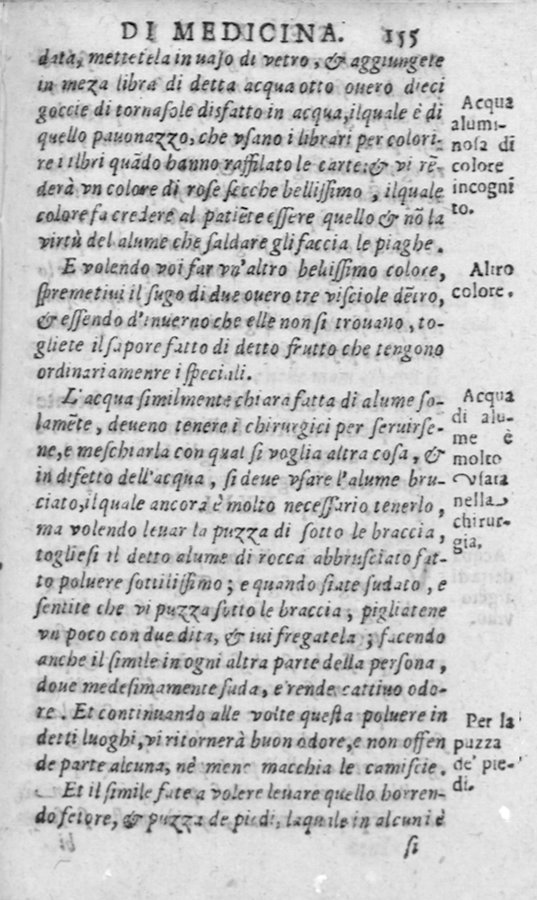 DI MEDICINA. 155
data, mettetela in uaso di vetro, & aggiungete
in meza libra di detta acqua otto ouero dieci
goccie di tornasole disfatto in acqua, ilquale è di
quello pauonazzo, che vsano i librari per colori-
re i libri quādo hanno raffilato le carte: & vi rē-
derà vn colore di rose secche bellissimo, ilquale
colore fa credere al patiēte essere quello & nō la
virtù del alume che saldare gli faccia le piaghe.
E volendo voi far vn'altro bellissimo colore,
spremetiui il sugo di due ouero tre visciole dētro,
& essendo d'inuerno che elle non si trouano, to-
gliete il sapore fatto di detto frutto che tengono
ordinariamenre i speciali.
L'acqua similmente chiara fatta di alume so-
lamēte, deueno tenere i chirurgici per seruirse-
ne, e meschiarla con qual si voglia altra cosa, &
in difetto dell'acqua, si deue vsare l'alume bru-
ciato, ilquale ancora è molto necessario tenerlo,
ma volendo leuar la puzza di sotto le braccia,
togliesi il detto alume di rocca abbrusciato fat-
to poluere sottilissimo; e quando siate sudato, e
sentite che vi puzza sotto le braccia, pigliatene
vn poco con due dita, & iui fregatela; facendo
anche il simile in ogni altra parte della persona,
doue medesimamente suda, e rende cattiuo odo-
re. Et continuando alle volte questa poluere in
detti luoghi, vi ritornerà buon odore, e non offen
de parte alcuna, nè meno macchia le camiscie.
Et il simile fate a volere leuare quello horren-
do fetore, & puzza de piedi, laquale in alcuni è
si
Acqua
alumi-
nosa di
colore
incogni
to.
Altro
colore.
Acqua
di alu-
me è
molto
vsata
nella
chirur-
gia.
Per la
puzza
de' pie-
di.